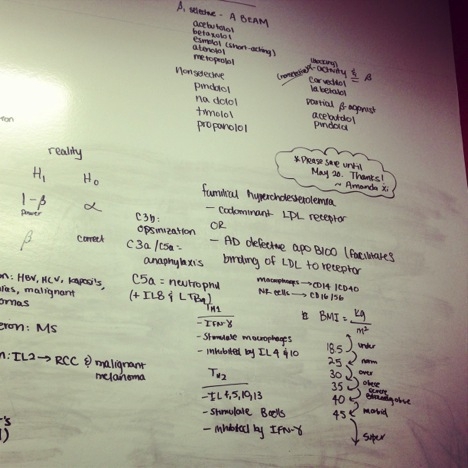 β1 selective - A BEAM
acebutolol
betaxolol
esmolol (short-acting)
atenolol
metoprolol
Nonselective
pindolol
nadolol
timolol
propanolol
(nonselective) α-activity & β
carvedilol
labetalol
partial β-agonist
acebutolol
pindolol
reality
H1 H0
1-β α
power
β correct
*Please save until
May 20. Thanks!
~ Amanda Xi
Familial hypercholesterolemia
- Codominant LDL receptor
OR
- AD defective apo B100 (facilitates
binding of LDL to receptor
C3b:
opsinization
C3a/C5a:
anaphylaxis
C5a = neutrophil
(+ IL8 & LTB4)
macrophages → CD14/CD40
NK cells → CD16/56
on: HBV, HCV, Kaposi's,
malignant
omas
eron: MS
n: IL2 → RCC & malignant
melanoma
TH1
- IFN-γ
- Stimulate macrophages
- inhibited by IL4 & 10
TH2
- IL4,5,10,13
- Stimulate B cells
- inhibited by IFN-γ
BMI = kg
m²
under
18.5
norm
25
over
30
obese
35
severe
40
morbid
45
super